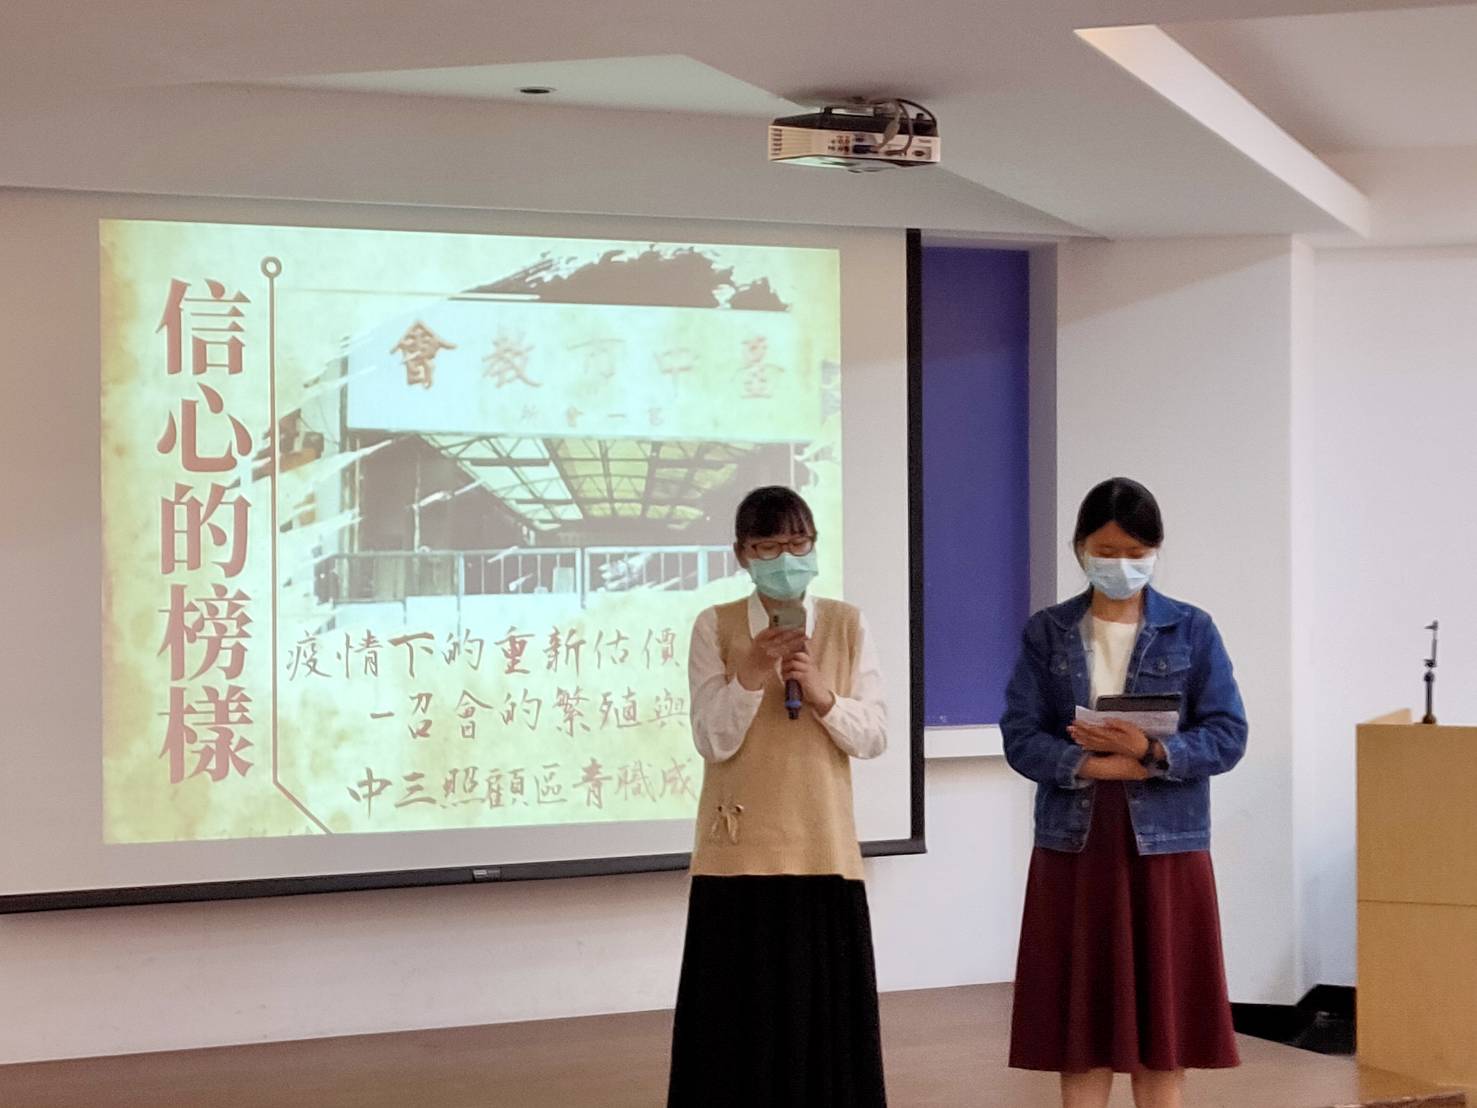 信心的榜樣
會教市中臺
所會一召
疫情下的重新估價
一召會的繁殖與
中三照顧區青職成